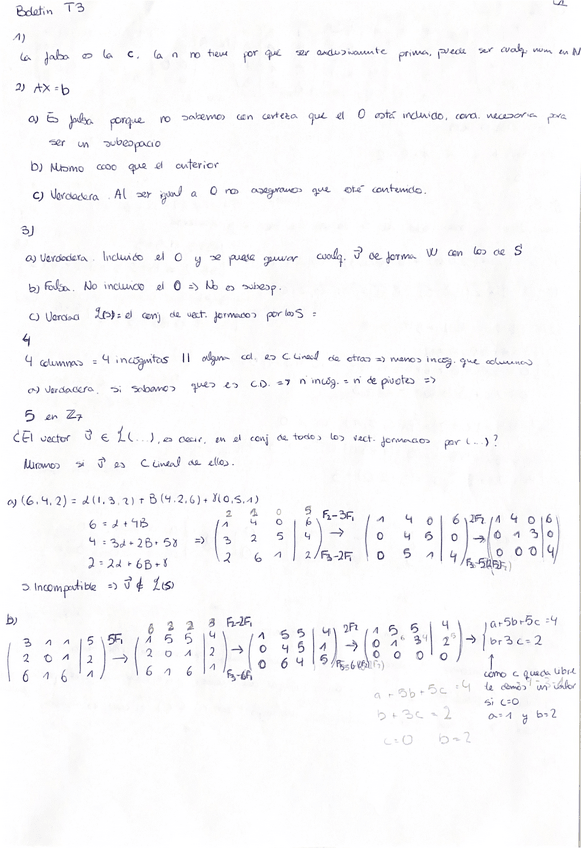 Boletin T3
1)
La falsa es la c. la n no tiene por que ser exclusivamente prima, puede ser cualq. num en N
2) AX = b
a) Es falsa porque no sabemos con certeza que el 0 está incluido, cond. necesaria para
ser un subespacio
b) Mismo caso que el anterior
c) Verdadera. Al ser igual a 0 nos aseguramos que esté contenido.
3)
a) Verdadera. Incluido el 0 y se puede generar cualq. v⃗ de forma W con los de S
b) Falsa. No incluido el 0 => No es subesp.
c) L(S) = el conj de vect. formados por los S =
4
4 columnas = 4 incógnitas || alguna col. es C Lineal de otras => menos incóg. que columnas
a) Verdadera, si sabemos que es C.D. => nº incóg. = nº de pivotes =>
5 en Z7
¿El vector v⃗ ∈ L(...), es decir, en el conj de todos los vect. formados por (...)?
Miramos si v⃗ es C Lineal de ellos.
a) (6,4,2) = α(1,3,2) + B(4,2,6) + γ(0,5,1)
2 2 0 5
6 = α + 4B ( 1 4 0 | 6 ) F2-3F1 ( 1 4 0 | 6 ) 2F2 ( 1 4 0 | 6 )
4 = 3α + 2B + 5γ => ( 3 2 5 | 4 ) → ( 0 4 5 | 0 ) → ( 0 1 3 | 0 )
2 = 2α + 6B + γ ( 2 6 1 | 2 ) F3-2F1 ( 0 5 1 | 4 ) ( 0 0 0 | 4 )
Incompatible => v⃗ ∉ L(S)
b)
6 2 2 3 F2-2F1
( 3 1 1 | 5 ) 5F1 ( 1 5 5 | 4 ) ( 1 5 5 | 4 ) 2F2 ( 1 5 5 | 4 ) a+5b+5c=4
( 2 0 1 | 2 ) → ( 2 0 1 | 2 ) → ( 0 4 5 | 1 ) → ( 0 1 3 | 2 ) → b+3c=2
( 6 1 6 | 1 ) ( 6 1 6 | 1 ) F3-6F1 ( 0 6 4 | 5 ) ( 0 0 0 | 0 )
como c queda libre
le damos un valor
si c=0
a=1 y b=2
a + 5b + 5c = 4
b + 3c = 2
c=0 b=2